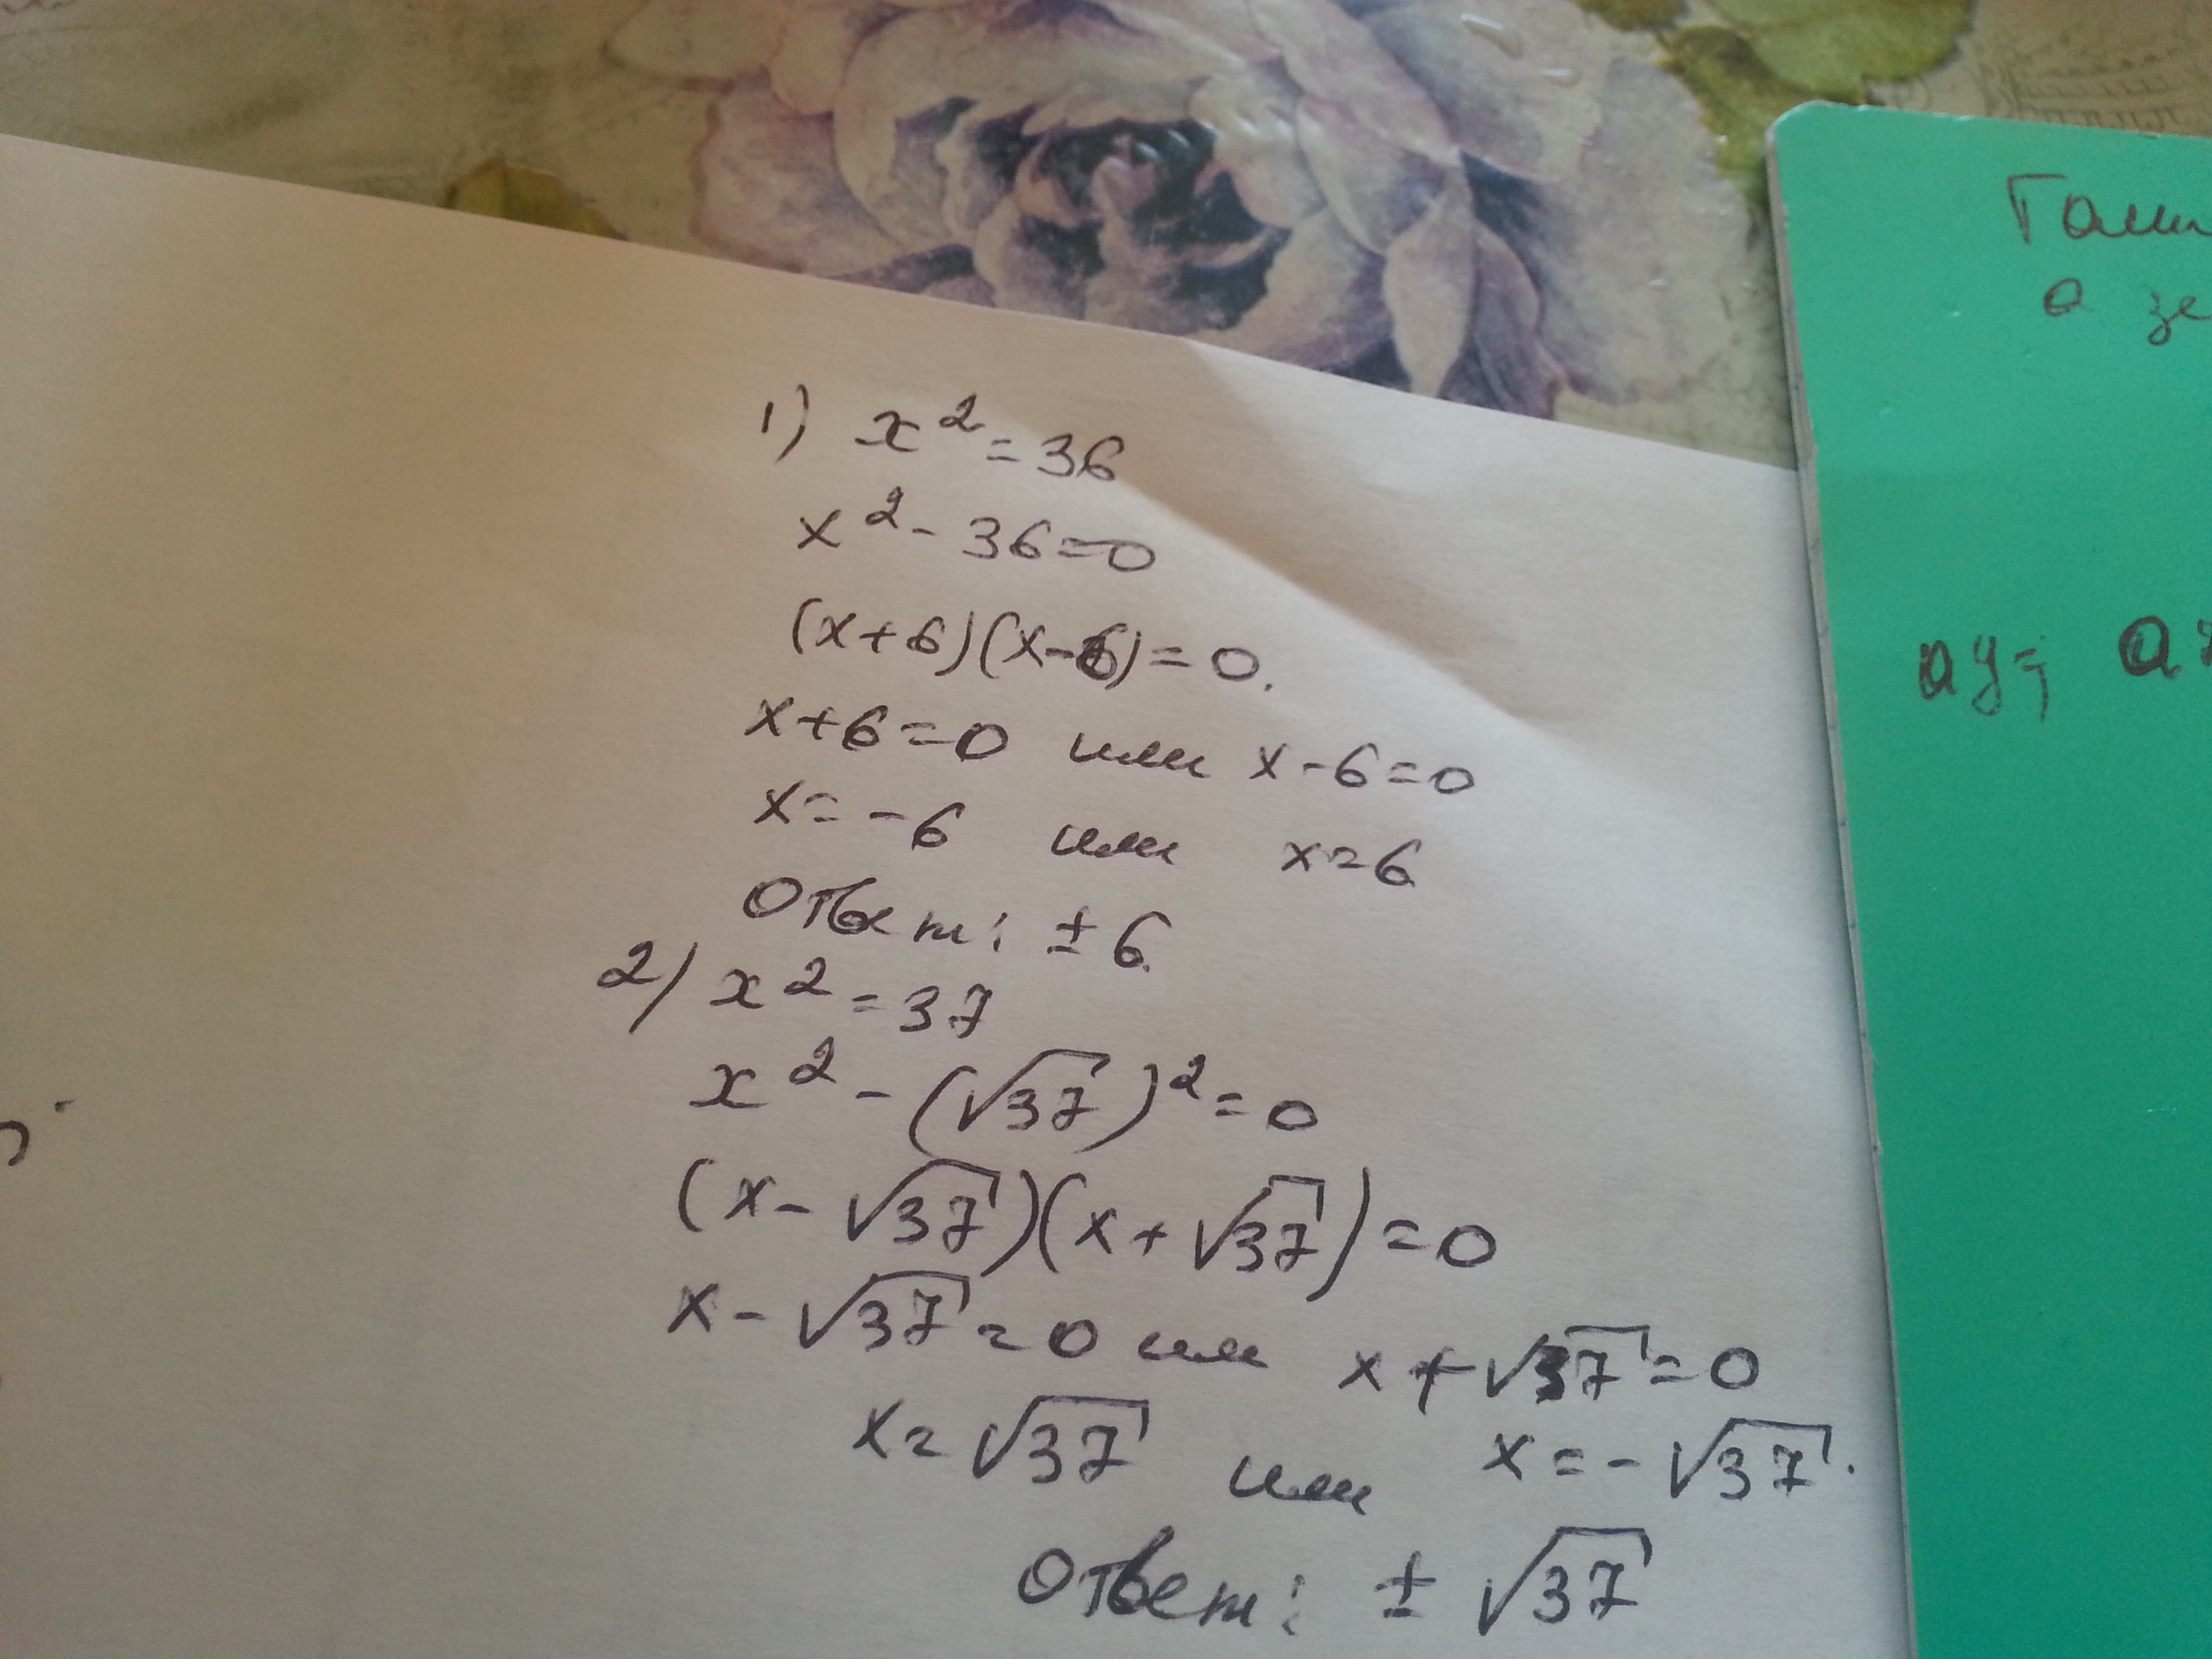 1) x² = 36
x² - 36 = 0
(x+6)(x-6) = 0.
x+6=0 или x-6=0
x = -6 или x=6
Ответ: ± 6.
2) x² = 37
x² - (√37)² = 0
(x - √37)(x + √37) = 0
x - √37 = 0 или x + √37 = 0
x = √37 или x = - √37.
Ответ: ± √37
а